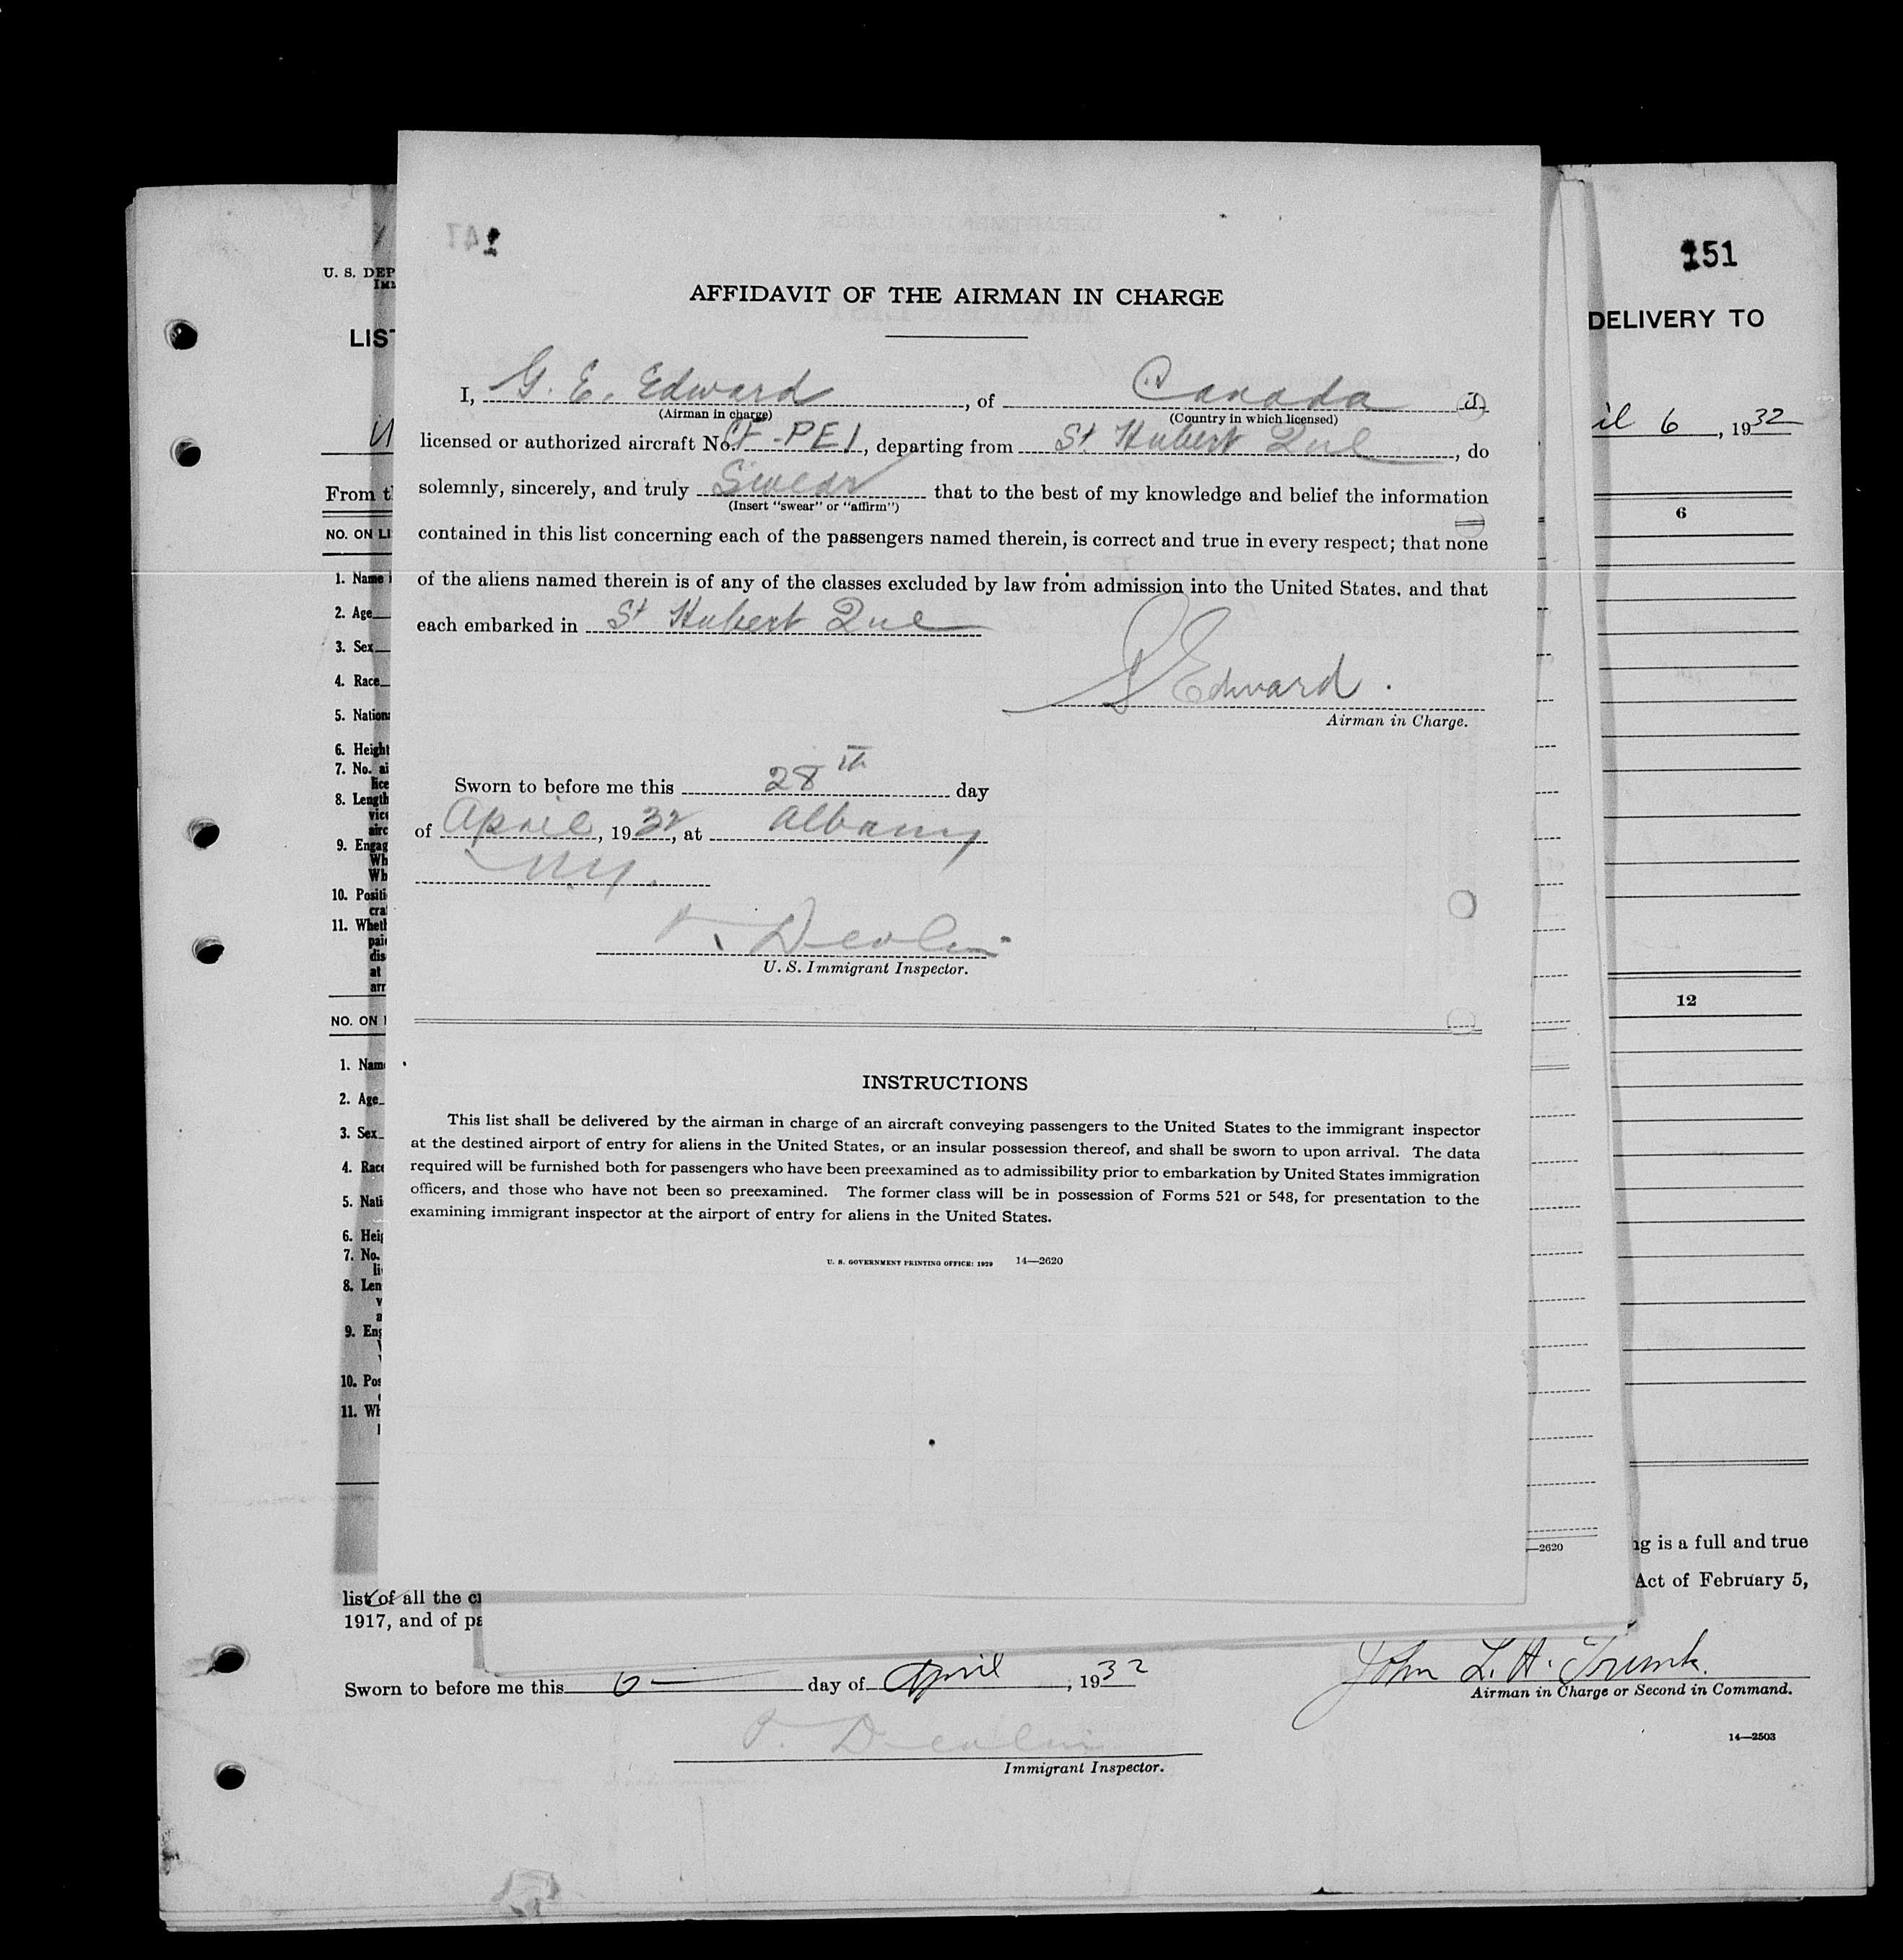 151
U. S. DEP
LIST
DELIVERY TO
il 6, 1932
From t
NO. ON LI
6
1. Name i
2. Age
3. Sex
4. Race
5. Nation
6. Height
7. No. ai
lice
8. Length
vice
airc
9. Engag
Wh
Wh
10. Positi
cra
11. Wheth
paid
dis
at
arr
NO. ON
12
1. Name
2. Age
3. Sex
4. Race
5. Nati
6. Heig
7. No.
li
8. Len
v
a
9. Eng
10. Pos
11. Wh
147
AFFIDAVIT OF THE AIRMAN IN CHARGE
I, G. E. Edward, of Canada
(Airman in charge) (Country in which licensed)
licensed or authorized aircraft No. CF-PEI, departing from St Hubert Que, do
solemnly, sincerely, and truly Swear that to the best of my knowledge and belief the information
(Insert "swear" or "affirm")
contained in this list concerning each of the passengers named therein, is correct and true in every respect; that none
of the aliens named therein is of any of the classes excluded by law from admission into the United States, and that
each embarked in St Hubert Que
Edward.
Airman in Charge.
Sworn to before me this 28th day
of April, 1932, at Albany
N.Y.
T. Devlin
U. S. Immigrant Inspector.
INSTRUCTIONS
This list shall be delivered by the airman in charge of an aircraft conveying passengers to the United States to the immigrant inspector
at the destined airport of entry for aliens in the United States, or an insular possession thereof, and shall be sworn to upon arrival. The data
required will be furnished both for passengers who have been preexamined as to admissibility prior to embarkation by United States immigration
officers, and those who have not been so preexamined. The former class will be in possession of Forms 521 or 548, for presentation to the
examining immigrant inspector at the airport of entry for aliens in the United States.
U. S. GOVERNMENT PRINTING OFFICE: 1929 14—2620
—2620
ng is a full and true
list of all the cr
Act of February 5,
1917, and of pa
Sworn to before me this 6 day of April, 1932
John L. H. Trunk.
Airman in Charge or Second in Command.
14—2503
T. Devlin
Immigrant Inspector.